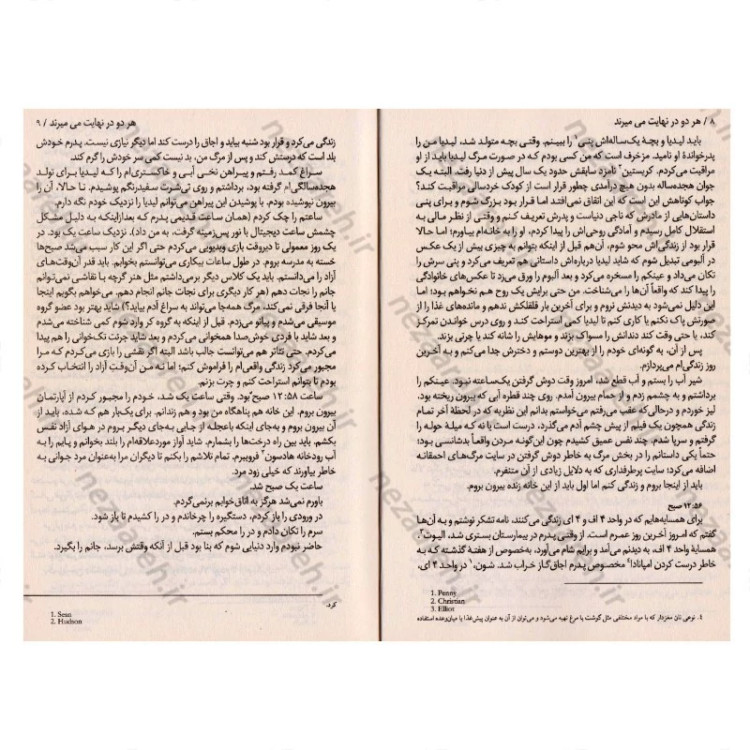 ۸ / هر دو در نهایت می میرند
باید لیدیا و بچهٔ یک‌ساله‌اش پنی¹ را ببینم. وقتی بچه متولد شد، لیدیا من را
پدرخواندهٔ او نامید. مزخرف است که من کسی بودم که در صورت مرگ لیدیا باید از او
مراقبت می‌کردم. کریستین² نامزد سابقش حدود یک سال پیش از دنیا رفت. البته یک
جوان هجده‌ساله بدون هیچ درآمدی چطور قرار است از کودک خردسالی مراقبت کند؟
جواب کوتاهش این است که این اتفاق نمی‌افتد. اما قرار بود بزرگ شوم و برای پنی
داستان‌هایی از مادرش که ناجی دنیاست و پدرش تعریف کنم و وقتی از نظر مالی به
استقلال کامل رسیدم و آمادگی روحی‌اش را پیدا کردم، او را به خانه‌ام بیاورم؛ اما حالا
قرار بود از زندگی‌اش محو شوم، آن‌هم قبل از اینکه بتوانم به چیزی بیش از یک عکس
در آلبومی تبدیل شوم که شاید لیدیا درباره‌اش داستان هم تعریف می‌کرد و پنی سرش را
تکان می‌داد و عینکم را مسخره می‌کرد و بعد آلبوم را ورق می‌زد تا عکس‌های خانوادگی
را پیدا کند که واقعاً آن‌ها را می‌شناخت. من حتی برایش یک روح هم نخواهم بود؛ اما
این دلیل نمی‌شود به دیدنش نروم و برای آخرین بار قلقلکش ندهم و مانده‌های غذا را از
صورتش پاک نکنم یا کاری کنم تا لیدیا کمی استراحت کند و روی درس خواندن تمرکز
کند، یا حتی وقت کند دندانش را مسواک بزند و موهایش را شانه کند یا چرتی بزند.
پس از آن، به گونه‌ای خودم را از بهترین دوستم و دخترش جدا می‌کنم و به آخرین
روز زندگی‌ام می‌پردازم.
شیر آب را بستم و آب قطع شد. امروز وقت دوش گرفتن یک‌ساعته نبود. عینکم را
برداشتم و به چشمم زدم و از حمام بیرون آمدم. روی چند قطره آبی که بیرون ریخته بود،
لیز خوردم و درحالی‌که عقب می‌رفتم می‌خواستم بدانم این نظریه که در لحظهٔ آخر تمام
زندگی همچون یک فیلم از پیش چشم آدم می‌گذرد، درست است یا نه که میلهٔ حوله را
گرفتم و سرپا شدم. چند نفس عمیق کشیدم چون این‌گونه مردن واقعاً بدشانسی بود؛
حتماً یکی داستانم را در بخش مرگ به خاطر دوش گرفتن در سایت مرگ‌های احمقانه
اضافه می‌کرد؛ سایت پرطرفداری که به دلایل زیادی از آن متنفرم.
باید از اینجا بروم و زندگی کنم اما اول باید از این خانه زنده بیرون بروم.
۱۲:۵۶ صبح
برای همسایه‌هایم که در واحد ۴ اف و ۴ ای زندگی می‌کنند، نامه تشکر نوشتم و به آن‌ها
گفتم که امروز آخرین روز عمرم است. از وقتی پدرم در بیمارستان بستری شد، الیوت³،
همسایهٔ واحد ۴ اف، به دیدنم می‌آمد و برایم شام می‌آورد، به‌خصوص از هفتهٔ گذشته که به
خاطر درست کردن امپانادا⁴ مخصوص پدرم اجاق‌گاز خراب شد. شون،¹ در واحد ۴ ای،
1. Penny
2. Christian
3. Elliot
4. نوعی نان مغزدار که با مواد مختلفی مثل گوشت یا مرغ تهیه می‌شود و می‌توان از آن به عنوان پیش‌غذا یا میان‌وعده استفاده
هر دو در نهایت می میرند / ۹
زندگی می‌کرد و قرار بود شنبه بیاید و اجاق را درست کند اما دیگر نیازی نیست. پدرم خودش
بلد است که درستش کند و پس از مرگ من، بد نیست کمی سر خودش را گرم کند.
سراغ کمد رفتم و پیراهن نخی آبی و خاکستری‌ام را که لیدیا برای تولد
هجده‌سالگی‌ام گرفته بود، برداشتم و روی تی‌شرت سفیدرنگم پوشیدم. تا حالا، آن را
بیرون نپوشیده بودم. با پوشیدن این پیراهن می‌توانم لیدیا را نزدیک خودم نگه دارم.
ساعتم را چک کردم (همان ساعت قدیمی پدرم که بعدازاینکه به دلیل مشکل
چشمش ساعت دیجیتال با نور پس‌زمینه گرفت، به من داد). نزدیک ساعت یک بود. در
یک روز معمولی تا دیروقت بازی ویدیویی می‌کردم حتی اگر این کار سبب می‌شد صبح‌ها
خسته به مدرسه بروم. در طول ساعات بیکاری می‌توانستم بخوابم. باید قدر آن‌وقت‌های
آزاد را می‌دانستم. باید یک کلاس دیگر برمی‌داشتم مثل هنر گرچه با نقاشی نمی‌توانم
جانم را نجات دهم (هر کار دیگری برای نجات جانم انجام دهم، می‌خواهم بگویم اینجا
یا آنجا فرقی نمی‌کند، مرگ همه‌جا می‌تواند به سراغ آدم بیاید؟) شاید بهتر بود عضو گروه
موسیقی می‌شدم و پیانو می‌زدم. قبل از اینکه به گروه کر وارد شوم کمی شناخته می‌شدم
و بعد شاید با فردی خوش‌صدا همخوانی می‌کردم و بعد شاید جرئت تک‌خوانی را هم پیدا
می‌کردم. حتی تئاتر هم می‌توانست جالب باشد البته اگر نقشی را بازی می‌کردم که مرا
مجبور می‌کرد زندگی واقعی‌ام را فراموش کنم؛ اما نه من آن‌وقت آزاد را انتخاب کرده
بودم تا بتوانم استراحت کنم و چرت بزنم.
ساعت ۱۲:۵۸ صبح بود. وقتی ساعت یک شد، خودم را مجبور کردم از آپارتمان
بیرون بروم. این خانه هم پناهگاه من بود و هم زندانم. برای یک‌بار هم که شده، باید از
آن بیرون بروم و به‌جای اینکه باعجله از جایی به‌جای دیگر بروم در هوای آزاد نفس
بکشم. باید بین راه درخت‌ها را بشمارم. شاید آواز موردعلاقه‌ام را بلند بخوانم و پایم را به
آب رودخانه هادسون² فروببرم. تمام تلاشم را بکنم تا دیگران مرا به‌عنوان مرد جوانی به
خاطر بیاورند که خیلی زود مرد.
ساعت یک صبح شد.
باورم نمی‌شد هرگز به اتاق‌خوابم برنمی‌گردم.
در ورودی را باز کردم، دستگیره را چرخاندم و در را کشیدم تا باز شود.
سرم را تکان دادم و در را محکم بستم.
حاضر نبودم وارد دنیایی شوم که بنا بود قبل از آنکه وقتش برسد، جانم را بگیرد.
کرد.
1. Sean
2. Hudson
nezaareh.ir